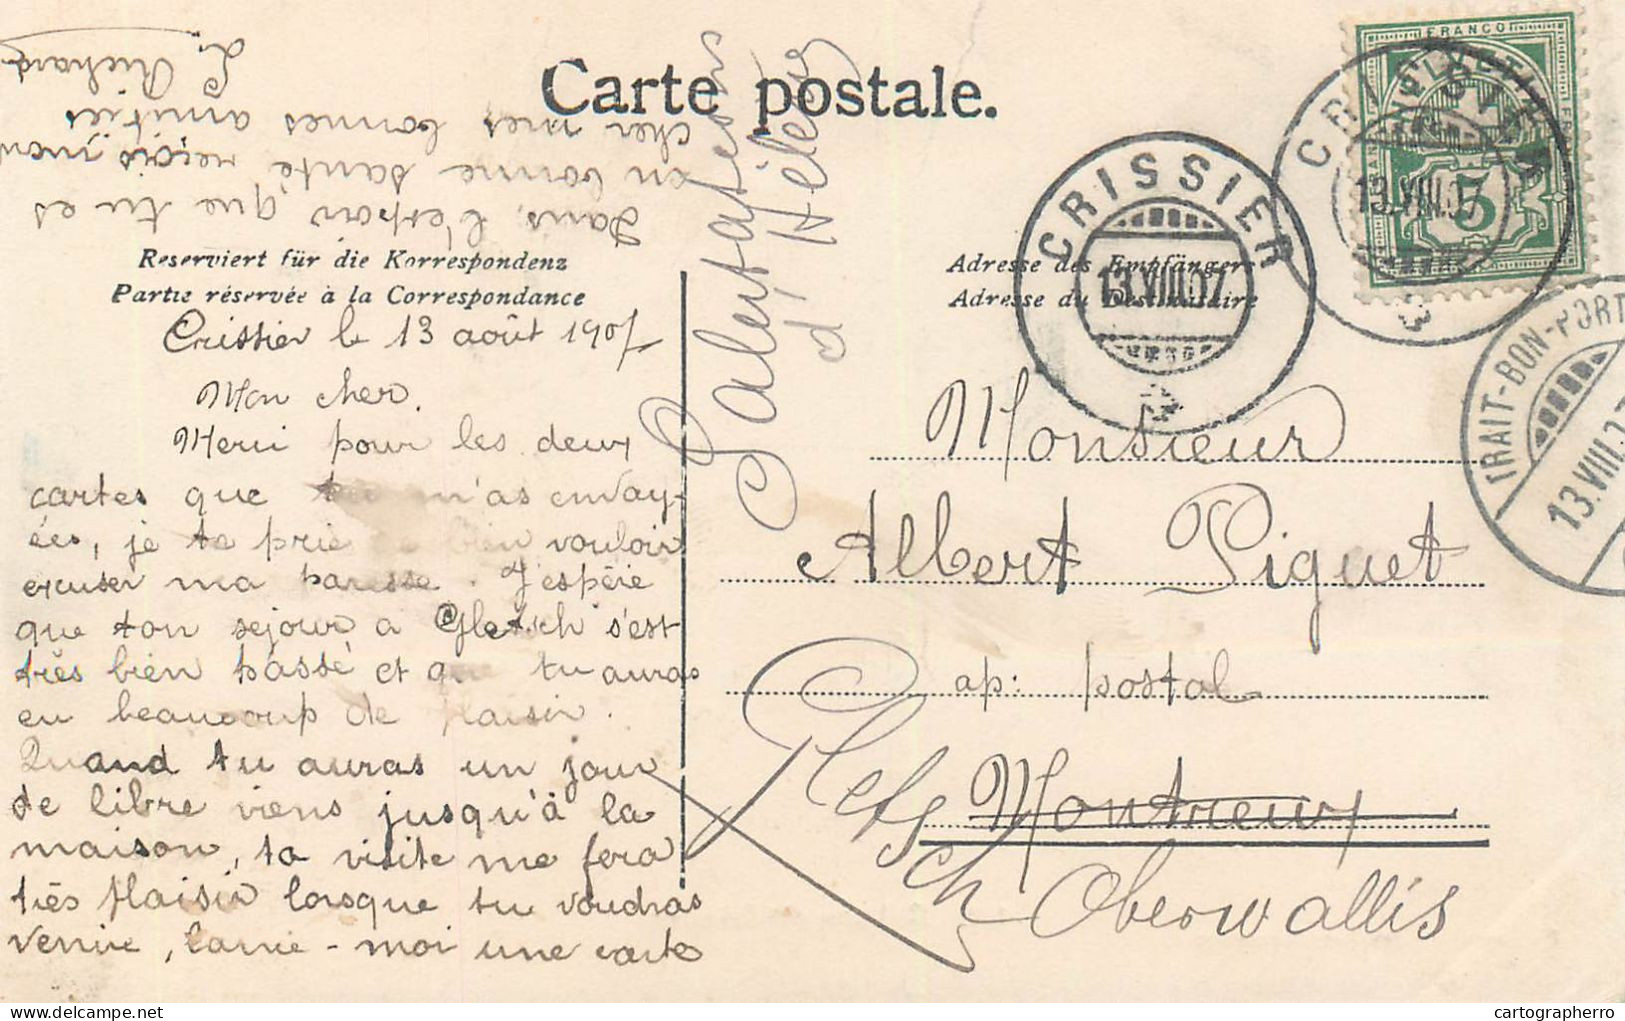 Carte postale.
Reserviert für die Korrespondenz
Partie réservée à la Correspondance
Adresse des Empfängers
Adresse du Destinataire
Crissier le 13 août 1907
Mon cher.
Merci pour les deux
cartes que tu m'as envoy-
ées, je te prie de bien vouloir
excuser ma paresse. J'espère
que ton sejour a Gletsch s'est
très bien passé et que tu auras
eu beaucoup de plaisir.
Quand tu auras un jour
de libre viens jusqu'à la
maison, ta visite me fera
très plaisir lorsque tu voudras
venir, -moi une carte
Dans l'espoir que tu es
en bonne santé, reçois mon
cher mes bonnes amitiés
L. Richard
d'Hélev
Monsieur
Albert Piguet
ap: postal
Montreux
Gletsch
Oberwallis
CRISSIER
13.VIII.07
FRANCO
HELVETIA
5
CRISSIER
13.VIII.07
TRAIT-BON-PORT
13.VIII.07
cartographerro